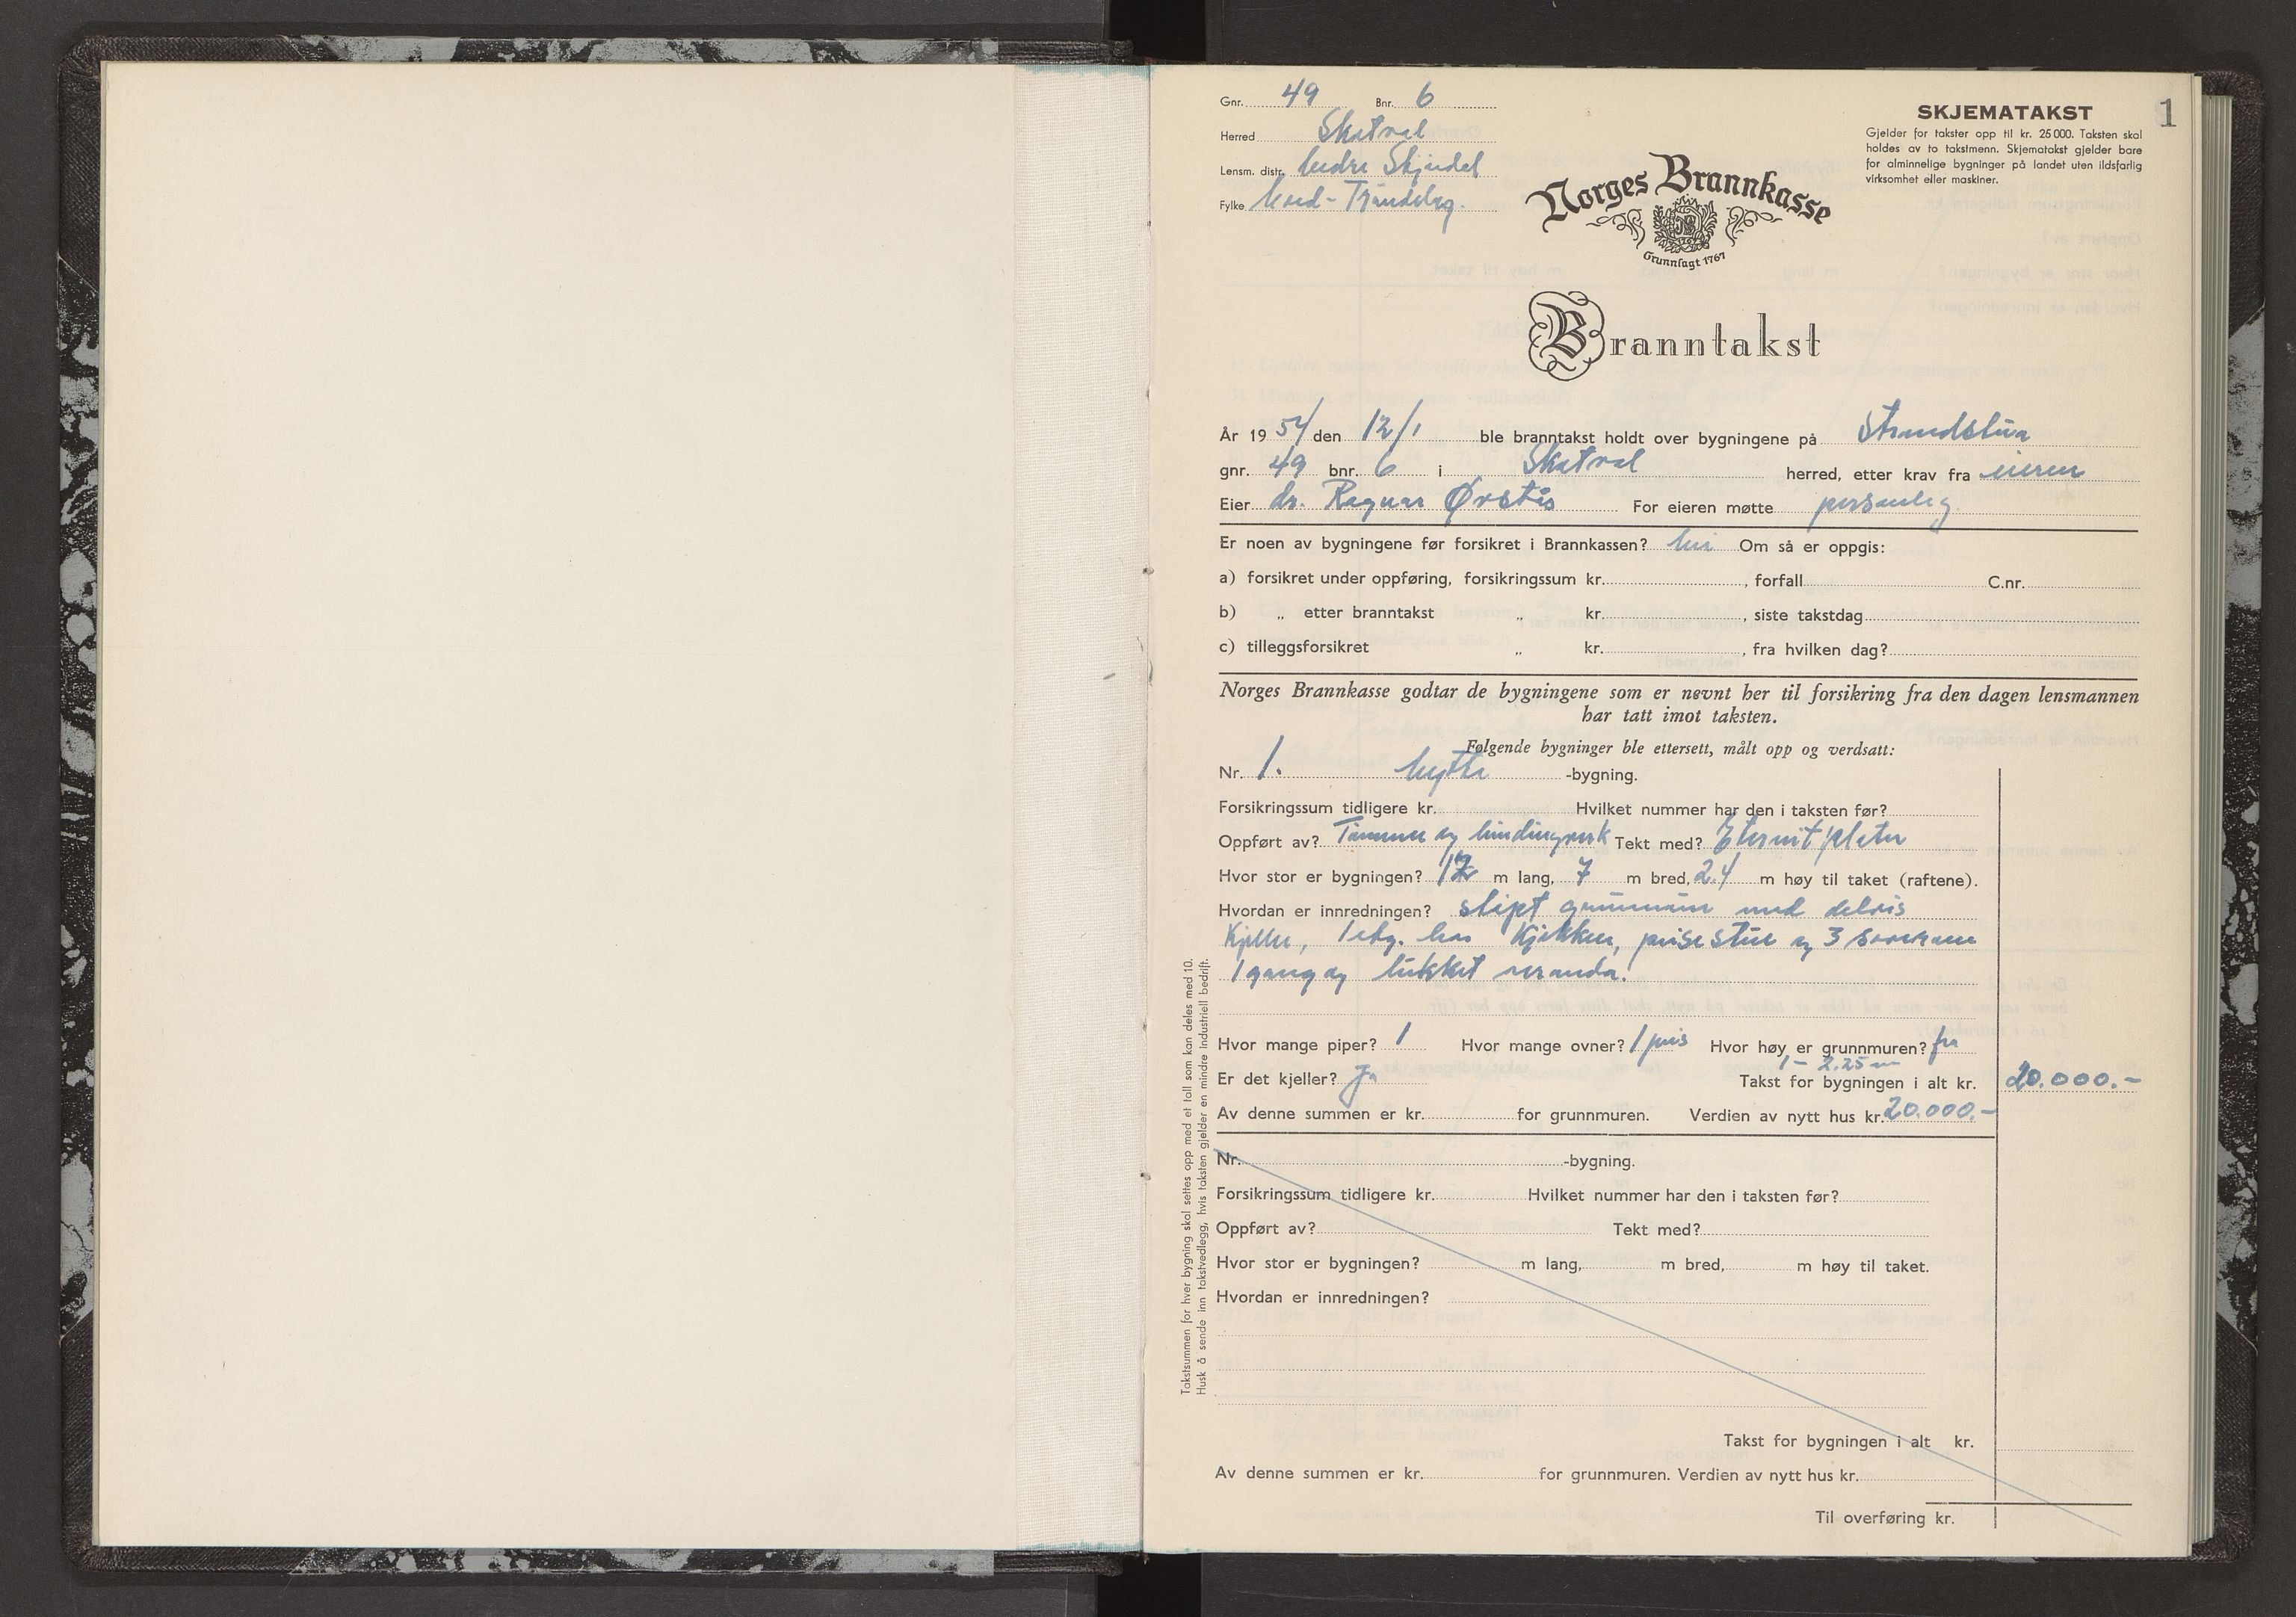 Gnr. 49 Bnr. 6
Herred Skatval
Lensm. distr. Nedre Stjørdal
Fylke Nord-Trøndelag.
SKJEMATAKST
1
Gjelder for takster opp til kr. 25 000. Taksten skal
holdes av to takstmenn. Skjematakst gjelder bare
for alminnelige bygninger på landet uten ildsfarlig
virksomhet eller maskiner.
Norges Brannkasse
Grunnlagt 1767
Branntakst
År 1954 den 12/1 ble branntakst holdt over bygningene på Strandstua
gnr. 49 bnr. 6 i Skatval herred, etter krav fra eieren
Eier dr. Ragnar Ørstås For eieren møtte personlig
Er noen av bygningene før forsikret i Brannkassen? Nei Om så er oppgis:
a) forsikret under oppføring, forsikringssum kr. , forfall C.nr.
b) „ etter branntakst „ kr. , siste takstdag
c) tilleggsforsikret „ kr. , fra hvilken dag?
Norges Brannkasse godtar de bygningene som er nevnt her til forsikring fra den dagen lensmannen
har tatt imot taksten.
Følgende bygninger ble ettersett, målt opp og verdsatt:
Nr. 1. hytte -bygning.
Forsikringssum tidligere kr. Hvilket nummer har den i taksten før?
Oppført av? Tømmer og bindingverk Tekt med? Eternitplater
Hvor stor er bygningen? 12 m lang, 7 m bred, 2.4 m høy til taket (raftene).
Hvordan er innredningen? støpt grunnmur med delvis
Kjeller, 1 etg. har Kjøkken, peisestue og 3 soverom
1 gang og lukket veranda.
Hvor mange piper? 1 Hvor mange ovner? 1 peis Hvor høy er grunnmuren? fra
1 – 2.25 m
Er det kjeller? Ja Takst for bygningen i alt kr. 20.000.-
Av denne summen er kr. for grunnmuren. Verdien av nytt hus kr. 20.000.-
Nr. -bygning.
Forsikringssum tidligere kr. Hvilket nummer har den i taksten før?
Oppført av? Tekt med?
Hvor stor er bygningen? m lang, m bred, m høy til taket.
Hvordan er innredningen?
Takst for bygningen i alt kr.
Av denne summen er kr. for grunnmuren. Verdien av nytt hus kr.
Til overføring kr.
Takstsummen for hver bygning skal settes opp med et tall som kan deles med 10.
Husk å sende inn takstvedlegg, hvis taksten gjelder en mindre industriell bedrift.